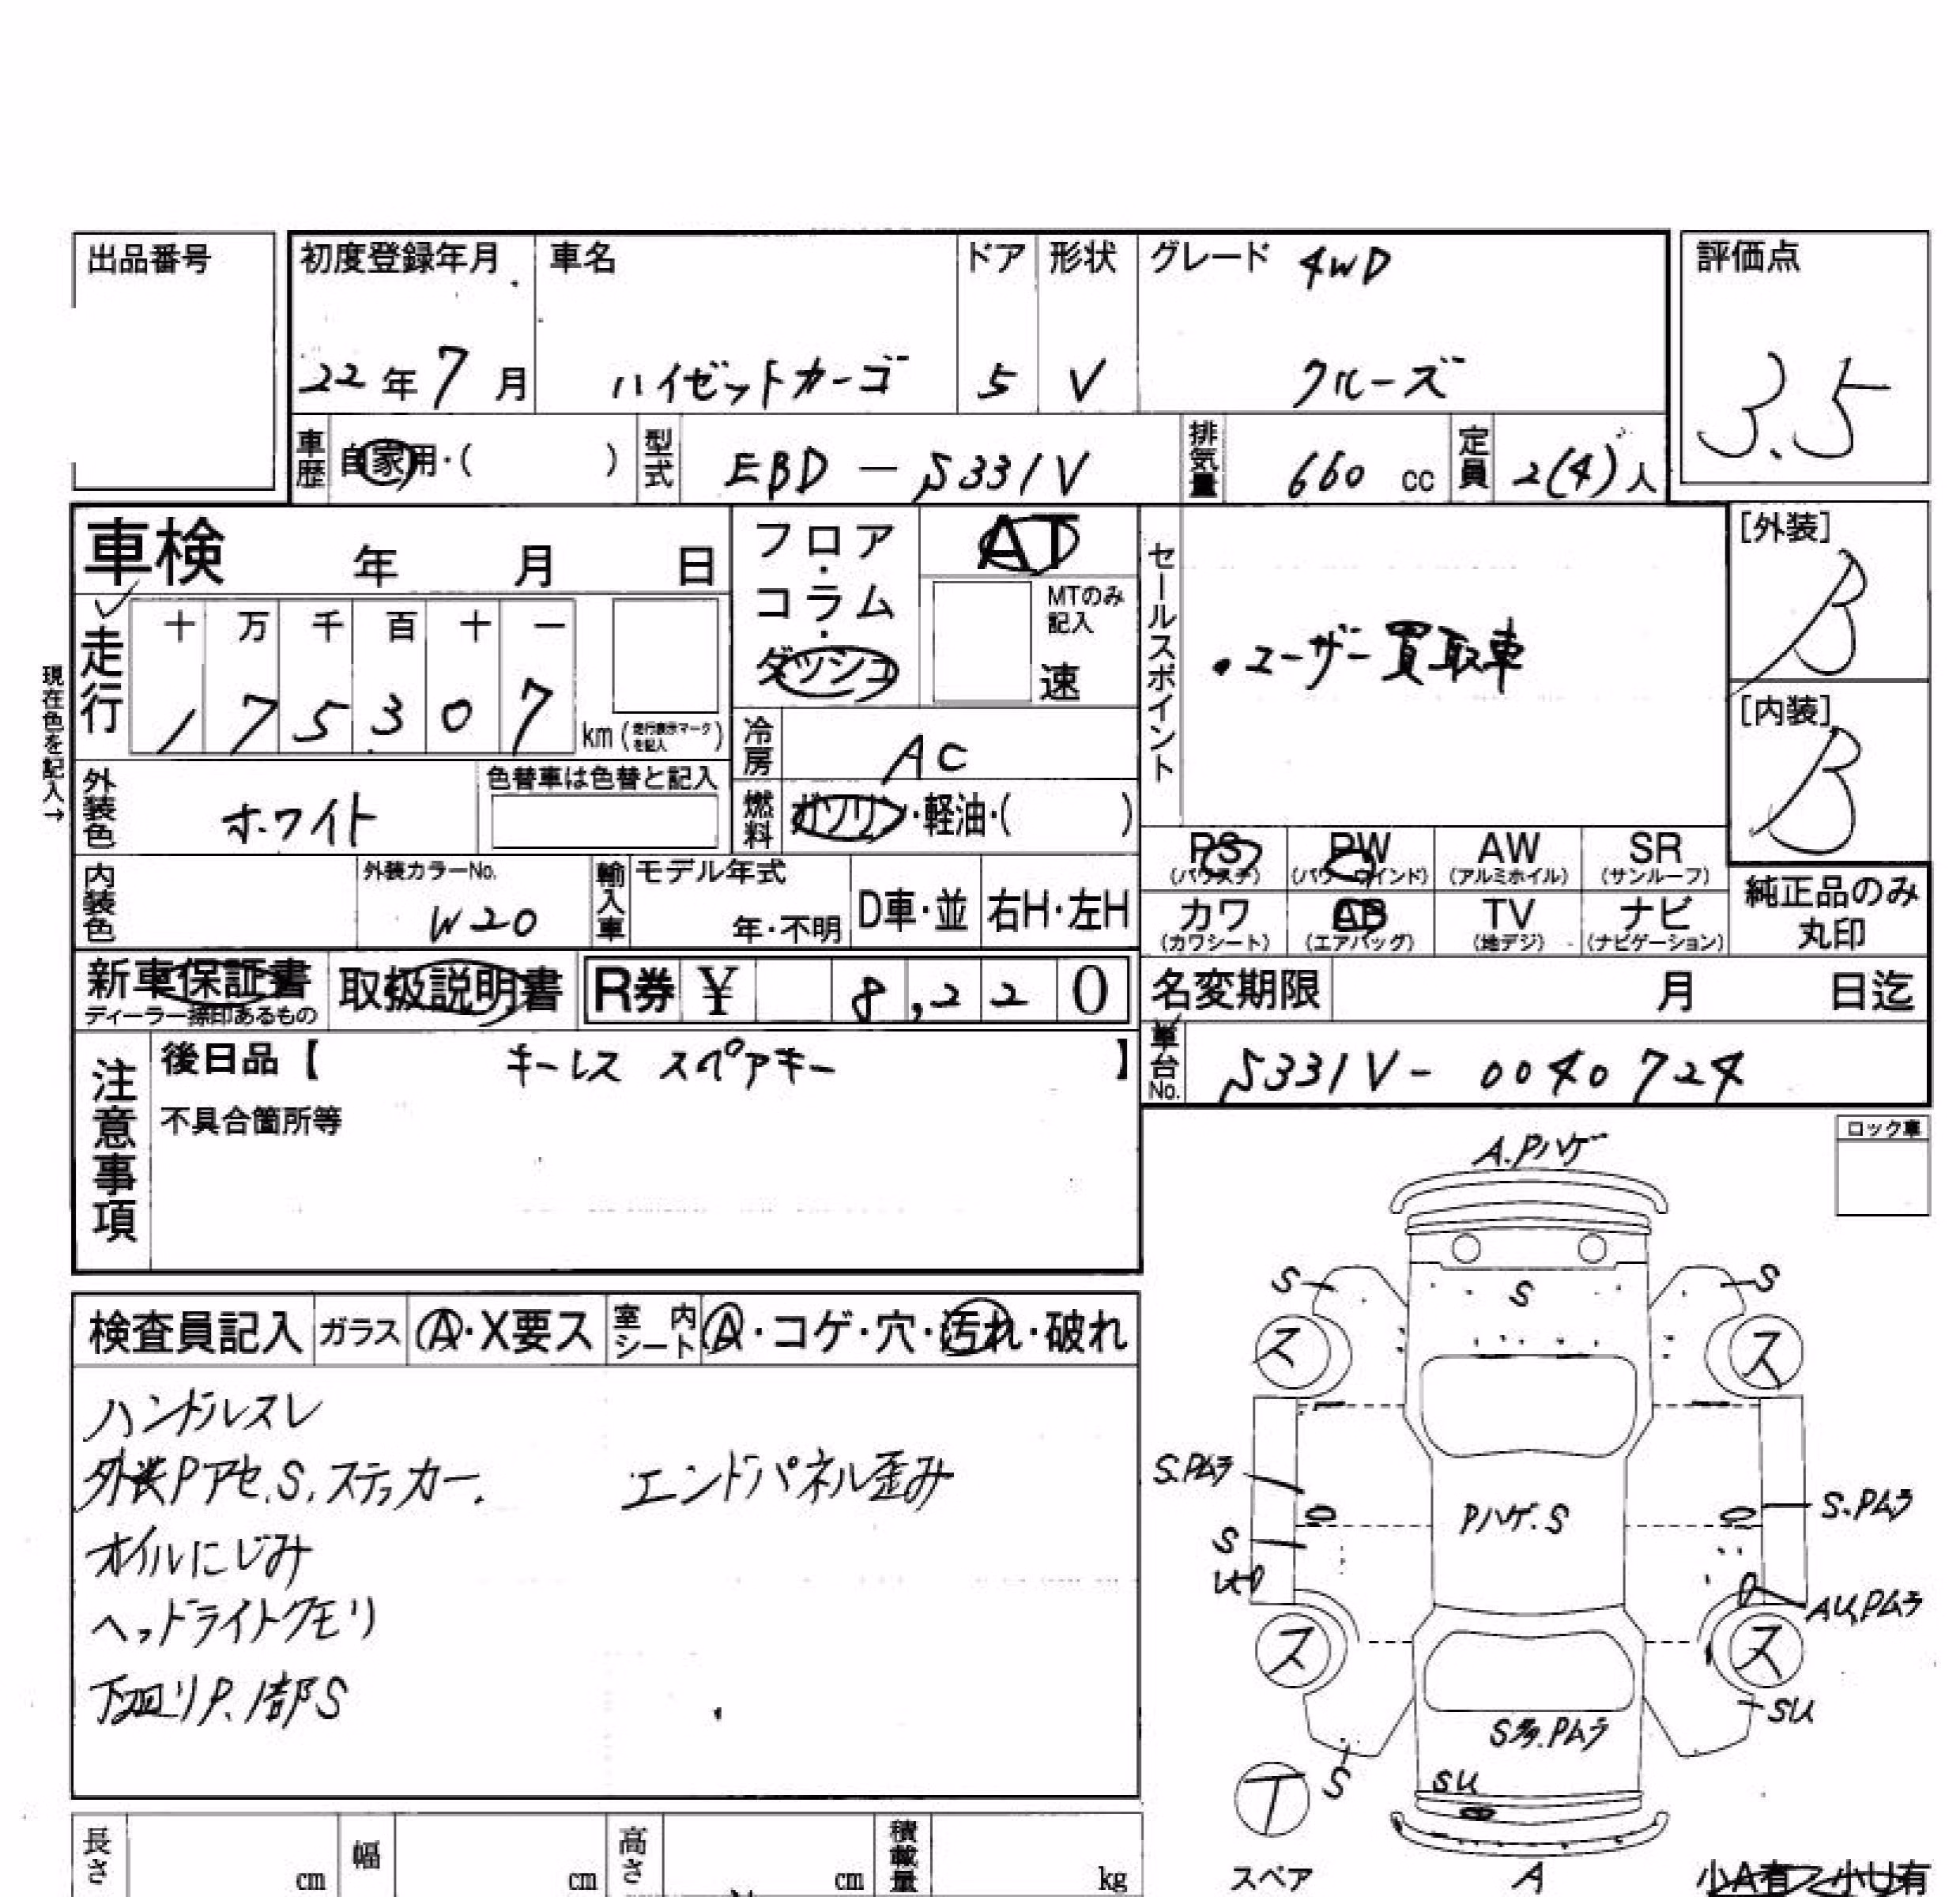 出品番号
初度登録年月
22年7月
車名
ハイゼットカーゴ
ドア
5
形状
V
グレード 4WD
クルーズ
評価点
3.5
車歴
自家用・( )
型式
EBD-S331V
排気量
660 cc
定員
2(4)人
車検 年 月 日
現在色を記入→
走行
十 万 千 百 十 一
1 7 5 3 0 7
km (走行表示マークを記入)
フロア・コラム・ダッシュ
AT
MTのみ記入
速
冷房
AC
燃料
ガソリン・軽油・( )
セールスポイント
・ユーザー買取車
[外装]
B
[内装]
B
外装色
ホワイト
色替車は色替と記入
内装色
外装カラーNo.
W20
輸入車
モデル年式
年・不明
D車・並
右H・左H
PS
(パワステ)
PW
(パワーウインド)
AW
(アルミホイル)
SR
(サンルーフ)
カワ
(カワシート)
AB
(エアバッグ)
TV
(地デジ)
ナビ
(ナビゲーション)
純正品のみ
丸印
新車保証書
ディーラー捺印あるもの
取扱説明書
R券 ¥ 8,220
名変期限 月 日迄
車台No.
S331V-0040724
注意事項
後日品【 キーレス スペアキー 】
不具合箇所等
ロック車
検査員記入
ガラス
A・X要ス
室内シート
A・コゲ・穴・汚れ・破れ
ハンドルスレ
外装Pアセ.S.ステッカー. エンドパネル歪み
オイルにじみ
ヘッドライトクモリ
下廻りP.1部S
A.Pハゲ
S
S
S
ス
ス
S.Pムラ
S.Pムラ
Pハゲ.S
S
AU,Pムラ
ス
ス
SU
S多.Pムラ
S
SU
T
スペア
A
小A有 小U有
長さ cm
幅 cm
高さ cm
積載量 kg